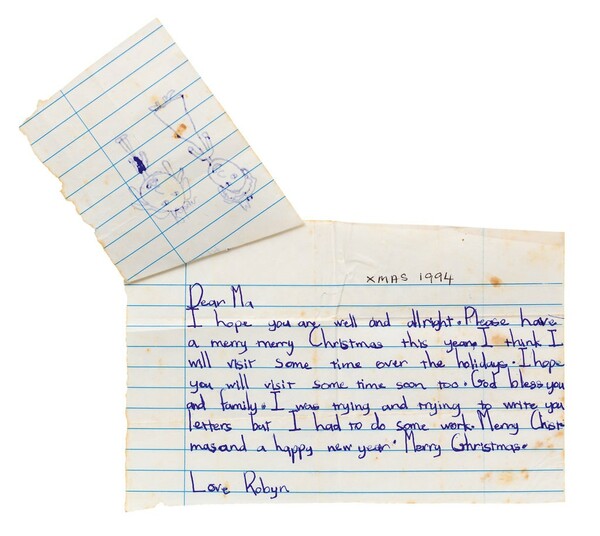 XMAS 1994
Dear Ma
I hope you are well and allright. Please have
a merry merry Christmas this year. I think I
will visit some time over the holidays. I hope
you will visit some time soon too. God bless you
and family. I was trying and trying to write you
letters but I had to do some work. Merry Christ
mas and a happy new year. Merry Christmas.
Love Robyn